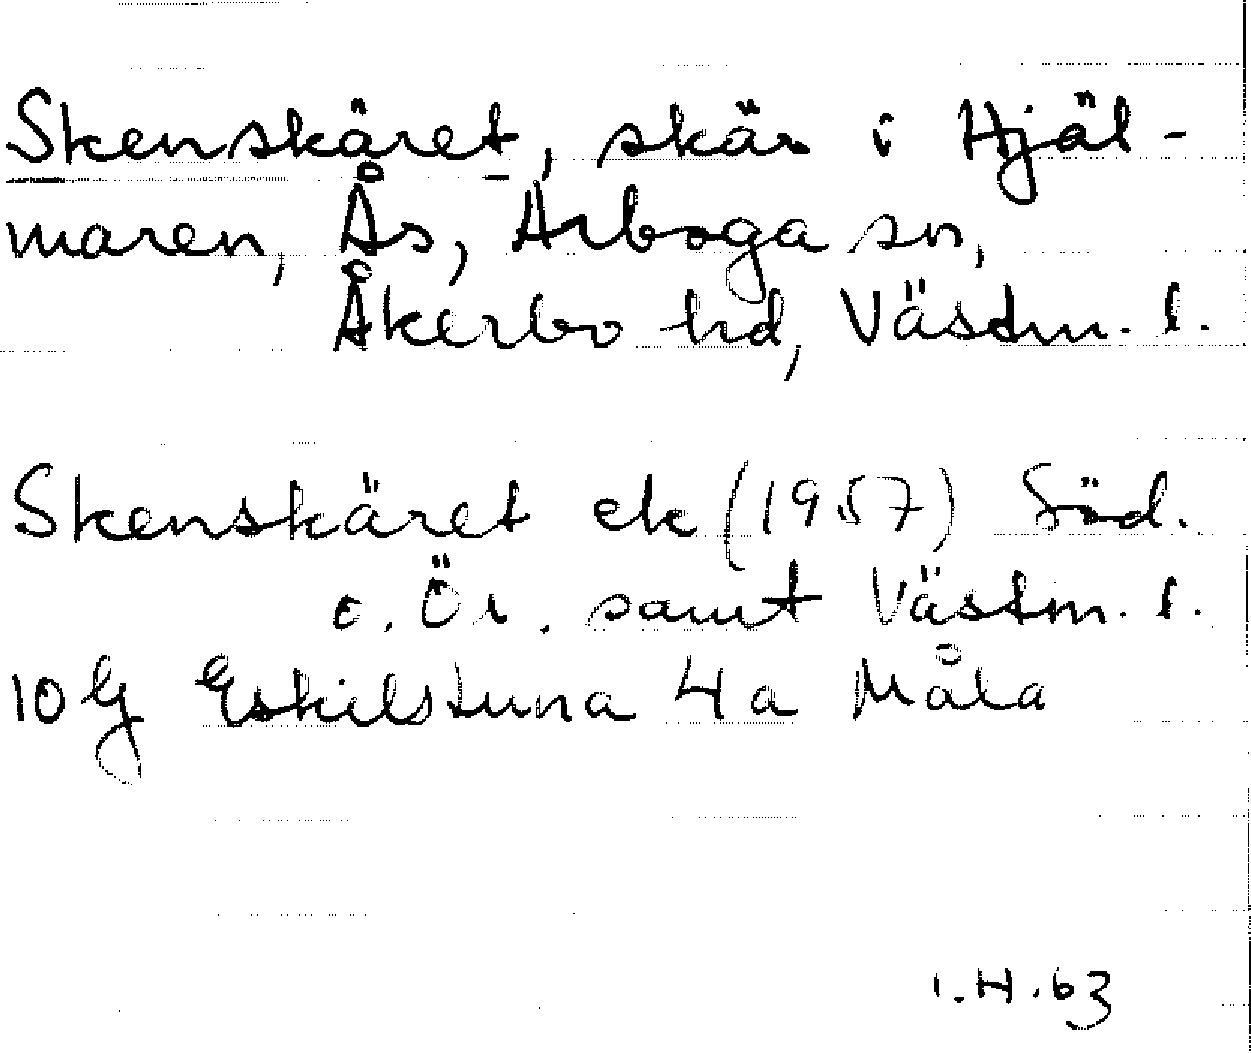 Skenskäret, skär i Hjäl-
maren, Ås, Arboga sn,
Åkerbo hd, Västm. l.
Skenskäret ek (1957) Söd.
o. Ör. samt Västm. l.
10 G Eskilstuna 4a Måla
I.H.63